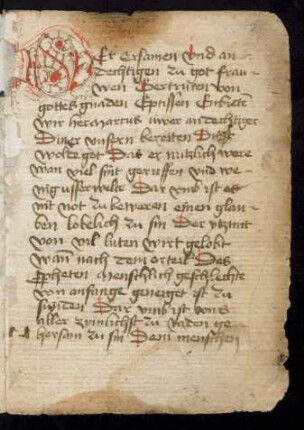 Er Ersamen vnd an
dechtigen zu got frau
wen Gertruten von
gottes gnaden Eptissen Enbiete
wir heranarcus iwer andechtiger
Diner vnsern bereiten Dinst
wolde got Das er nutzlich were
wan viel sint geruffen vnd we
nig vsserwelte Dar vmb ist es
nit not zu beweren einen glau
ben lobelich zu sin Der
von vil luten wirt gelobt
wan nach dem orteil Des
propheten menschlich geschlechte
von anfange geneiget ist zu
sunden Dar vmb ist vns
aller zymlichst zu raden ge
horsam zu sin Dem menschen